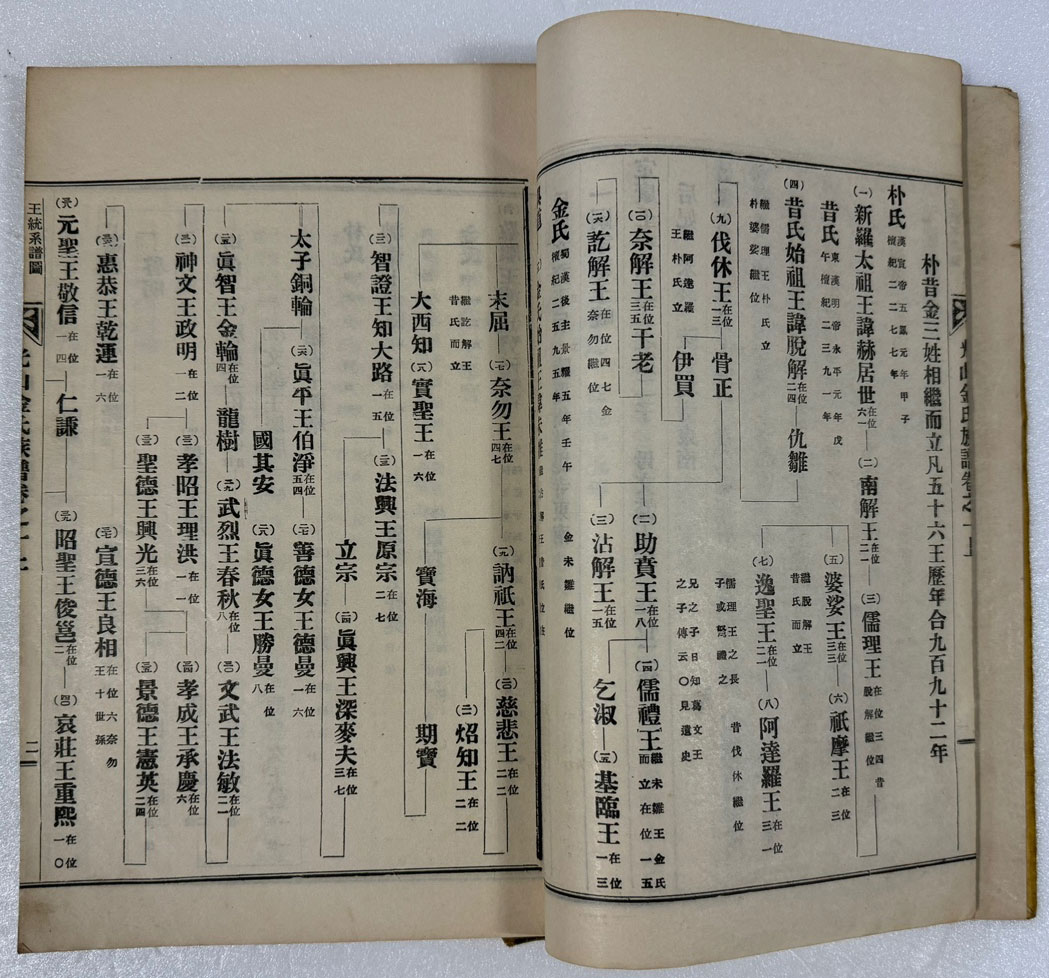 朴昔金三姓相繼而立凡五十六王歷年合九百九十二年
朴氏 漢宣帝五鳳元年甲子 檀紀二二七七年
(一)新羅太祖王諱赫居世 在位六一
(二)南解王 在位二一
(三)儒理王 在位三四昔脫解繼位
昔氏 東漢明帝永平元年戊午檀紀二三九一年
(五)婆娑王 在位三三
繼脫解王昔氏而立
(六)祇摩王 在位二三
(四)昔氏始祖王諱脫解 在位二四
仇雛
(七)逸聖王 在位二一
(八)阿達羅王 在位三一
繼儒理王朴氏立
朴婆娑繼位
儒理王之長子或駑禮之
昔伐休繼位
(九)伐休王 在位一三
骨正
繼阿達羅王朴氏立
伊買
兄之子曰知葛文王之子傳云〇見遺史
(一〇)奈解王 在位三五
于老
(一一)助賁王 在位一八
(一四)儒禮王 繼未雛王金氏而立在位一五
(一六)訖解王 在位四七金奈勿繼位
(一二)沾解王 在位一五
乞淑
(一五)基臨王 在位一三
金氏 蜀漢後主景耀五年壬午檀紀二五九五年
金未雛繼位
光山金氏族譜卷之一上
末屈
(一七)奈勿王 在位四七
(一九)訥祇王 在位四二
(二〇)慈悲王 在位二二
繼訖解王昔氏而立
(二一)炤知王 在位二二
大西知
(一八)實聖王 在位一六
寶海
期寶
(二二)智證王知大路 在位一五
(二三)法興王原宗 在位二七
立宗
(二四)眞興王深麥夫 在位三七
太子銅輪
(二六)眞平王伯淨 在位五四
(二七)善德女王德曼 在位一六
國其安
(二八)眞德女王勝曼 在位八
(二五)眞智王金輪 在位四
龍樹
(二九)武烈王春秋 在位八
(三〇)文武王法敏 在位二一
(三一)神文王政明 在位一二
(三二)孝昭王理洪 在位一一
(三四)孝成王承慶 在位六
(三三)聖德王興光 在位三六
(三五)景德王憲英 在位二四
(三六)惠恭王乾運 在位一六
(三七)宣德王良相 在位六奈勿王十世孫
(三八)元聖王敬信 在位一四
仁謙
(三九)昭聖王俊邕 在位二
(四〇)哀莊王重熙 在位一〇
王統系譜圖
光山金氏族譜卷之一上
二